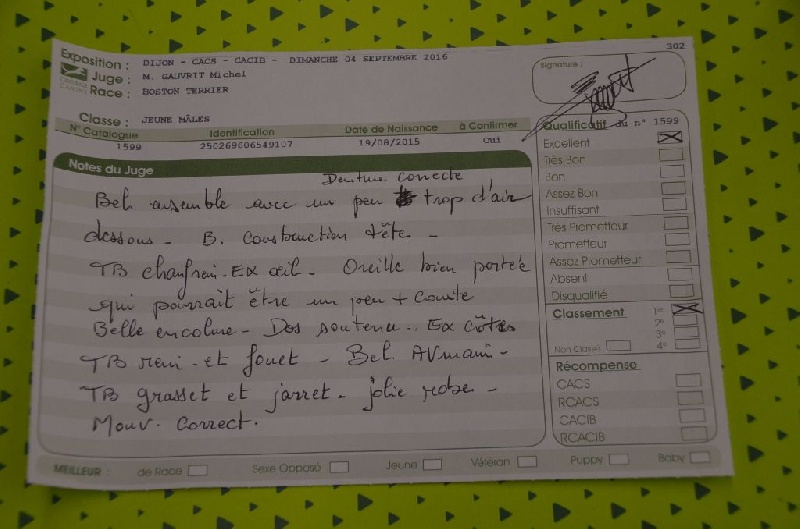 302
Exposition : DIJON - CACS - CACIB - DIMANCHE 04 SEPTEMBRE 2016
Juge : M. GAUVRIT Michel
Race : BOSTON TERRIER
Classe : JEUNE MÂLES
N° Catalogue Identification Date de Naissance à Confirmer
1599 250269606549107 19/08/2015 Oui
Notes du Juge
Denture correcte
Bel ensemble avec un peu trop d'air
dessous - B. Construction tête -
TB chanfrein - EX œil - Oreille bien portée
qui pourrait être un peu + courte
Belle encolure - Dos soutenu - Ex côtes
TB rein et fouet - Bel. AVmain -
TB grasset et jarret - jolie robe -
Mouv. Correct.
Signature :
Qualificatif du n° 1599
Excellent
Très Bon
Bon
Assez Bon
Insuffisant
Très Prometteur
Prometteur
Assez Prometteur
Absent
Disqualifié
Classement 1er
2e
3e
Non Classé 4e
Récompense
CACS
RCACS
CACIB
RCACIB
MEILLEUR : de Race Sexe Opposé Jeune Vétéran Puppy Baby